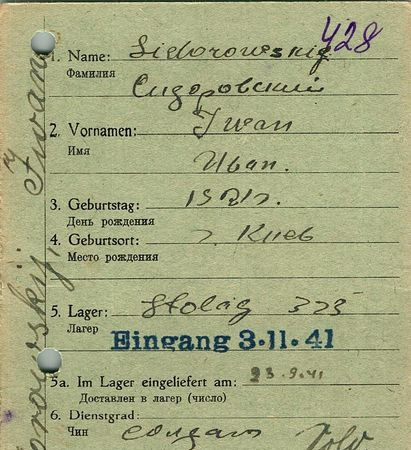 428
1. Name: Sidorowskij
Фамилия
Сидоровский
2. Vornamen: Iwan
Имя
Иван.
3. Geburtstag: 1921г.
День рождения
4. Geburtsort: г. Киев
Место рождения
5. Lager: Stalag 325
Лагер
Eingang 3.11.41
5a. Im Lager eingeliefert am: 23.9.41
Доставлен в лагер (число)
6. Dienstgrad:
Чин солдат
Iwan